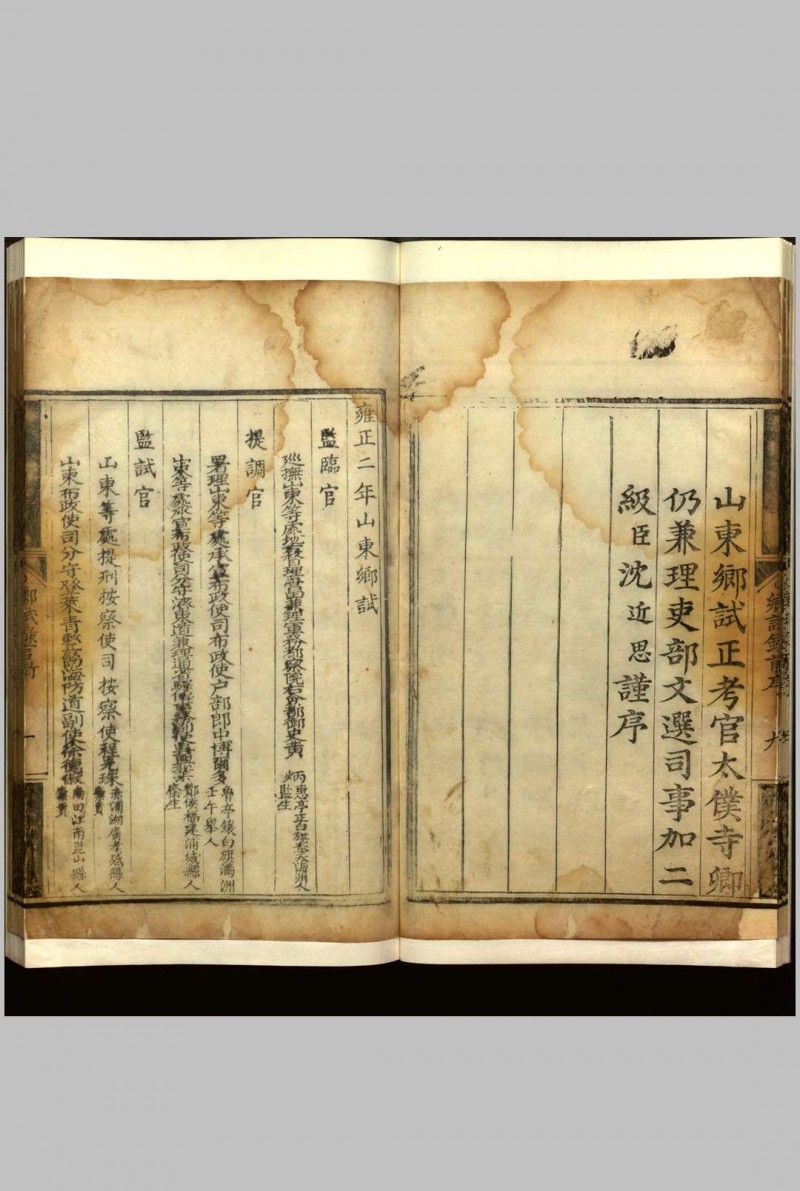 山東鄉試正考官太僕寺卿
仍兼理吏部文選司事加二
級臣沈近思謹序
雍正二年山東鄉試
監臨官
巡撫山東等處地方督理營田兼理軍務都察院右僉都御史黃
炳惠亭正白旗奉天海州人
監生
提調官
署理山東等處承宣布政使司布政使戶部郎中博爾多
魯亭鑲白旗滿洲
壬午舉人
山東等處承宣布政使司
鄭侯福建浦城縣人
廕生
監試官
山東等處提刑按察使司按察使程光珠
赤浦湖廣孝感縣人
歲貢
山東布政使司分守登萊青整飭海防道副使徐德俶
南田江南崑山縣人
歲貢